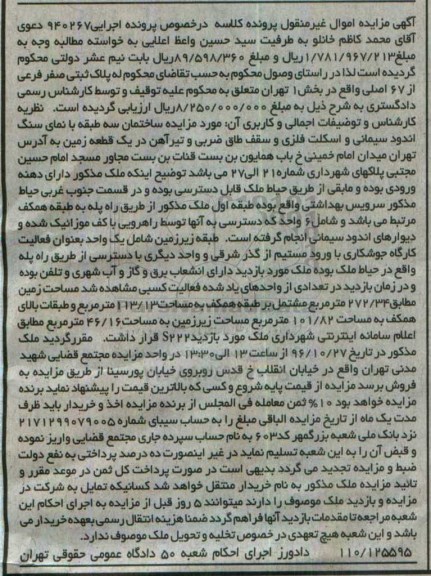 آگهی مزایده اموال غیرمنقول پرونده کلاسه درخصوص پرونده اجرایی ۹۴۰۲۶۷ دعوی
آقای محمد کاظم خانلو به طرفیت سید حسین واعظ اعلایی به خواسته مطالبه وجه به
مبلغ ۱/۷۸۱/۹۶۷/۲۱۳ ریال و مبلغ ۸۹/۵۹۸/۳۶۰ ریال بابت نیم عشر دولتی محکوم
گردیده است لذا در راستای وصول محکوم به حسب تقاضای محکوم له پلاک ثبتی صفر فرعی
از ۶۷ اصلی واقع در بخش ۱ تهران متعلق به محکوم علیه توقیف و توسط کارشناس رسمی
دادگستری به شرح ذیل به مبلغ ۸/۲۵۰/۰۰۰/۰۰۰ ریال ارزیابی گردیده است. نظریه
کارشناس و توضیفات اجمالی و کاربری آن: مورد مزایده ساختمان سه طبقه با نمای سنگ
اندود سیمانی و اسکلت فلزی و سقف طاق ضربی و تیرآهن در یک قطعه زمین به آدرس
تهران میدان امام خمینی خ باب همایون بن بست قنات بن بست مجاور مسجد امام حسین
مجتبی پلاکهای شهرداری شماره ۲۱ الی ۲۷ می باشد توضیح اینکه ملک مذکور دارای دهنه
ورودی بوده و مابقی از طریق حیاط ملک قابل دسترسی بوده و در قسمت جنوب غربی حیاط
مذکور سرویس بهداشتی واقع بوده طبقه اول ملک مذکور از طریق راه پله به طبقه همکف
مرتبط می باشد و شامل ۶ واحد که دسترسی به آنها توسط راهرویی با کف موزائیک شده و
دیوارهای اندود سیمانی انجام گرفته است. طبقه زیرزمین شامل یک واحد بعنوان فعالیت
کارگاه جوشکاری با ورود مستیم از گذر شرقی و واحد دیگری با دسترسی از طریق راه پله
واقع در حیاط ملک بوده ملک مورد بازدید دارای انشعاب برق و گاز و آب شهری و تلفن بوده
و در زمان بازدید در تعدادی از واحدهای یاد شده فعالیت کسبی مشاهده شد مساحت زمین
مطابق ۲۷۲/۳۴ مترمربع مشتمل بر طبقه همکف به مساحت ۱۱۳/۱۳ مترمربع و طبقات بالای
همکف به مساحت ۱۰۱/۸۲ مترمربع مساحت زیرزمین به مساحت ۴۶/۱۶ مترمربع مطابق
اعلام سامانه اینترنتی شهرداری ملک مورد بازدید S۲۲۲ قرار داشت. مقررگردید ملک
مذکور در تاریخ ۹۶/۱۰/۲۷ از ساعت ۱۳ الی ۱۳:۳۰ در واحد مزایده مجتمع قضایی شهید
مدنی تهران واقع در خیابان انقلاب خ قدس روبروی خیابان پورسینا از طریق مزایده به
فروش برسد مزایده از قیمت پایه شروع و کسی که بالاترین قیمت را پیشنهاد نماید برنده
مزایده خواهد بود ۱۰% ثمن معامله فی المجلس از برنده مزایده اخذ و خریدار باید ظرف
مدت یک ماه از تاریخ مزایده الباقی مبلغ را به حساب سیبای شماره ۲۱۷۱۲۹۹۰۷۹۰۰۵
نزد بانک ملی شعبه بزرگمهر کد ۶۰۳ به نام حساب سپرده جاری مجتمع قضایی واریز نموده
و قبض آن را به این شعبه تسلیم نماید در غیر اینصورت ده درصد پرداختی به نفع دولت
ضبط و مزایده تجدید می گردد بدیهی است در صورت پرداخت کل ثمن در موعد مقرر و
تائید مزایده ملک مذکور به نام خریدار منتقل خواهد شد کسانیکه تمایل به شرکت در
مزایده و بازدید ملک موصوف را دارند میتوانند ۵ روز قبل از مزایده به اجرای احکام این
شعبه مراجعه تا مقدمات بازدید آنها فراهم گردد ضمنا هزینه انتقال رسمی بعهده خریدار می
باشد و این شعبه هیچ تعهدی در خصوص تخلیه و تحویل ملک موصوف ندارد.
۱۱۰/۱۲۵۵۹۵ دادورز اجرای احکام شعبه ۵۰ دادگاه عمومی حقوقی تهران